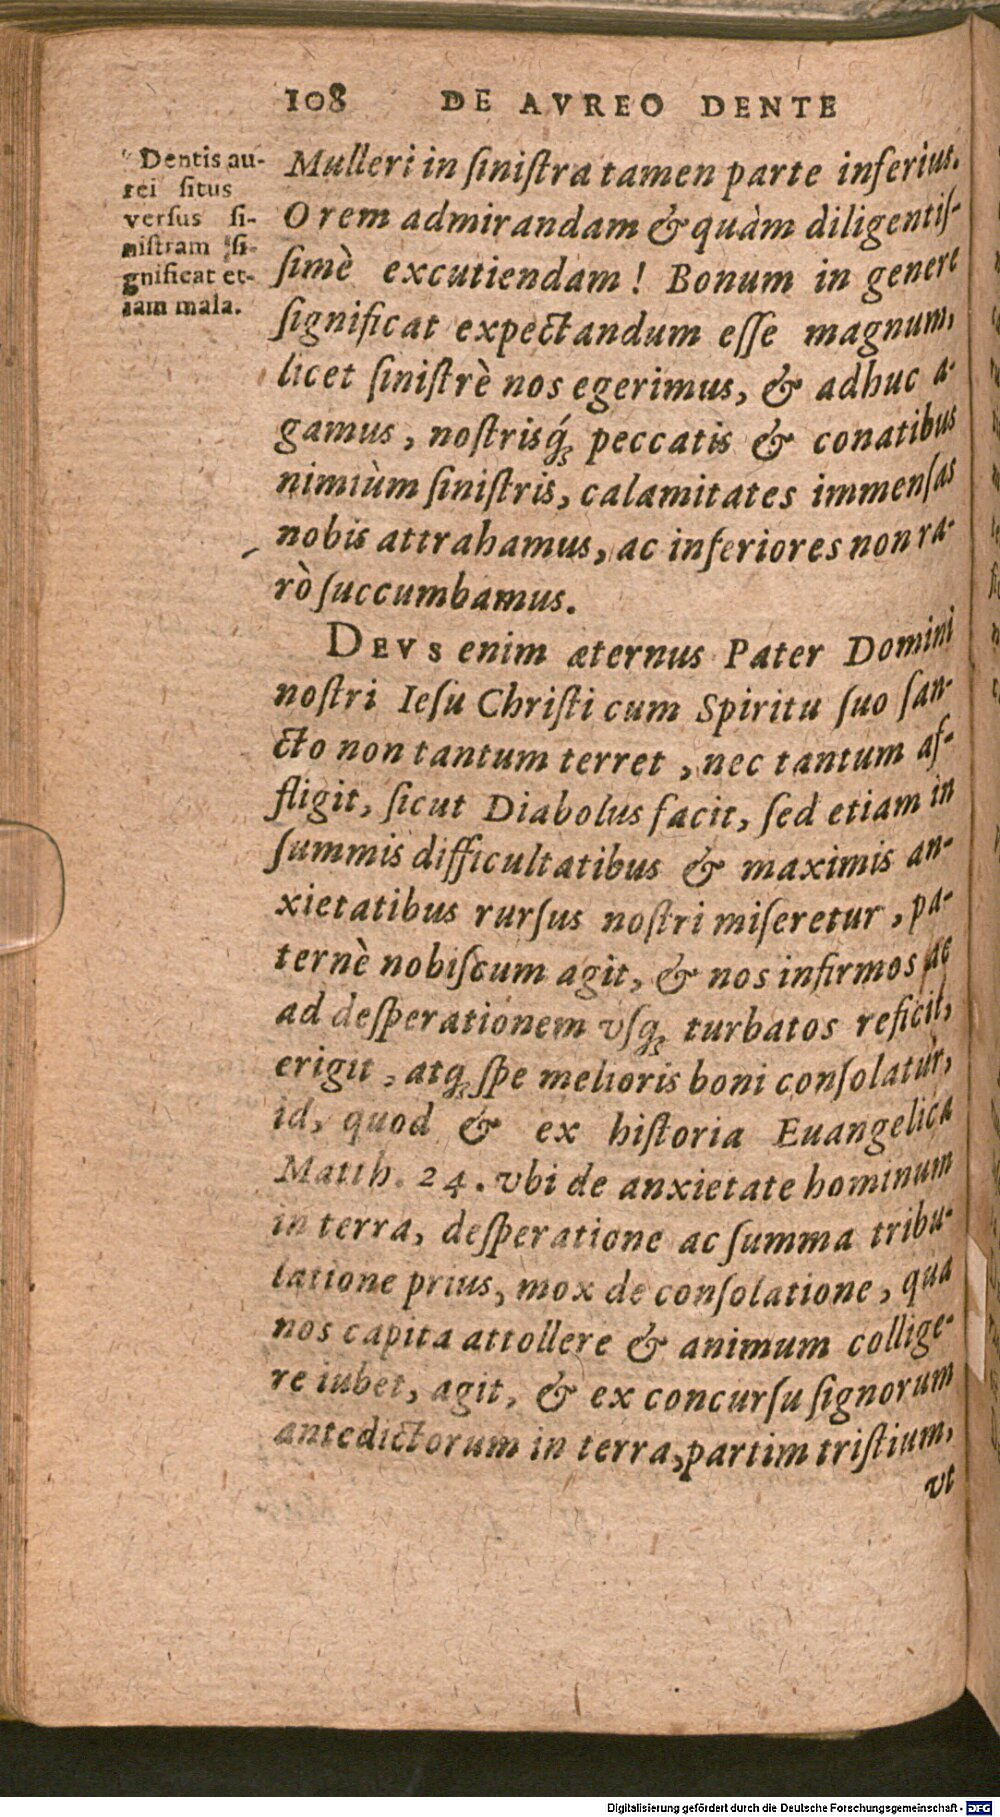 108 DE AVREO DENTE
Dentis au-
rei situs
versus si-
nistram si-
gnificat et-
iam mala.
Mulleri in ſiniſtra tamen parte inferius.
O rem admirandam & quàm diligentiſ-
ſimè excutiendam! Bonum in genere
ſignificat expectandum eſſe magnum,
licet ſiniſtrè nos egerimus, & adhuc a-
gamus, noſtrisq́; peccatis & conatibus
nimiùm ſiniſtris, calamitates immenſas
nobis attrahamus, ac inferiores non ra-
rò ſuccumbamus.
DEVS enim æternus Pater Domini
noſtri Ieſu Chriſti cum Spiritu ſuo ſan-
cto non tantum terret, nec tantum af-
fligit, ſicut Diabolus facit, ſed etiam in
ſummis difficultatibus & maximis an-
xietatibus rurſus noſtri miſeretur, pa-
ternè nobiſcum agit, & nos infirmos ac
ad deſperationem vſq; turbatos reficit,
erigit, atq; ſpe melioris boni conſolatur,
id, quod & ex hiſtoria Euangelica
Matth. 24. vbi de anxietate hominum
in terra, deſperatione ac ſumma tribu-
latione prius, mox de conſolatione, qua
nos capita attollere & animum collige-
re iubet, agit, & ex concurſu ſignorum
antedictorum in terra, partim triſtium,
vt
Digitalisierung gefördert durch die Deutsche Forschungsgemeinschaft - DFG